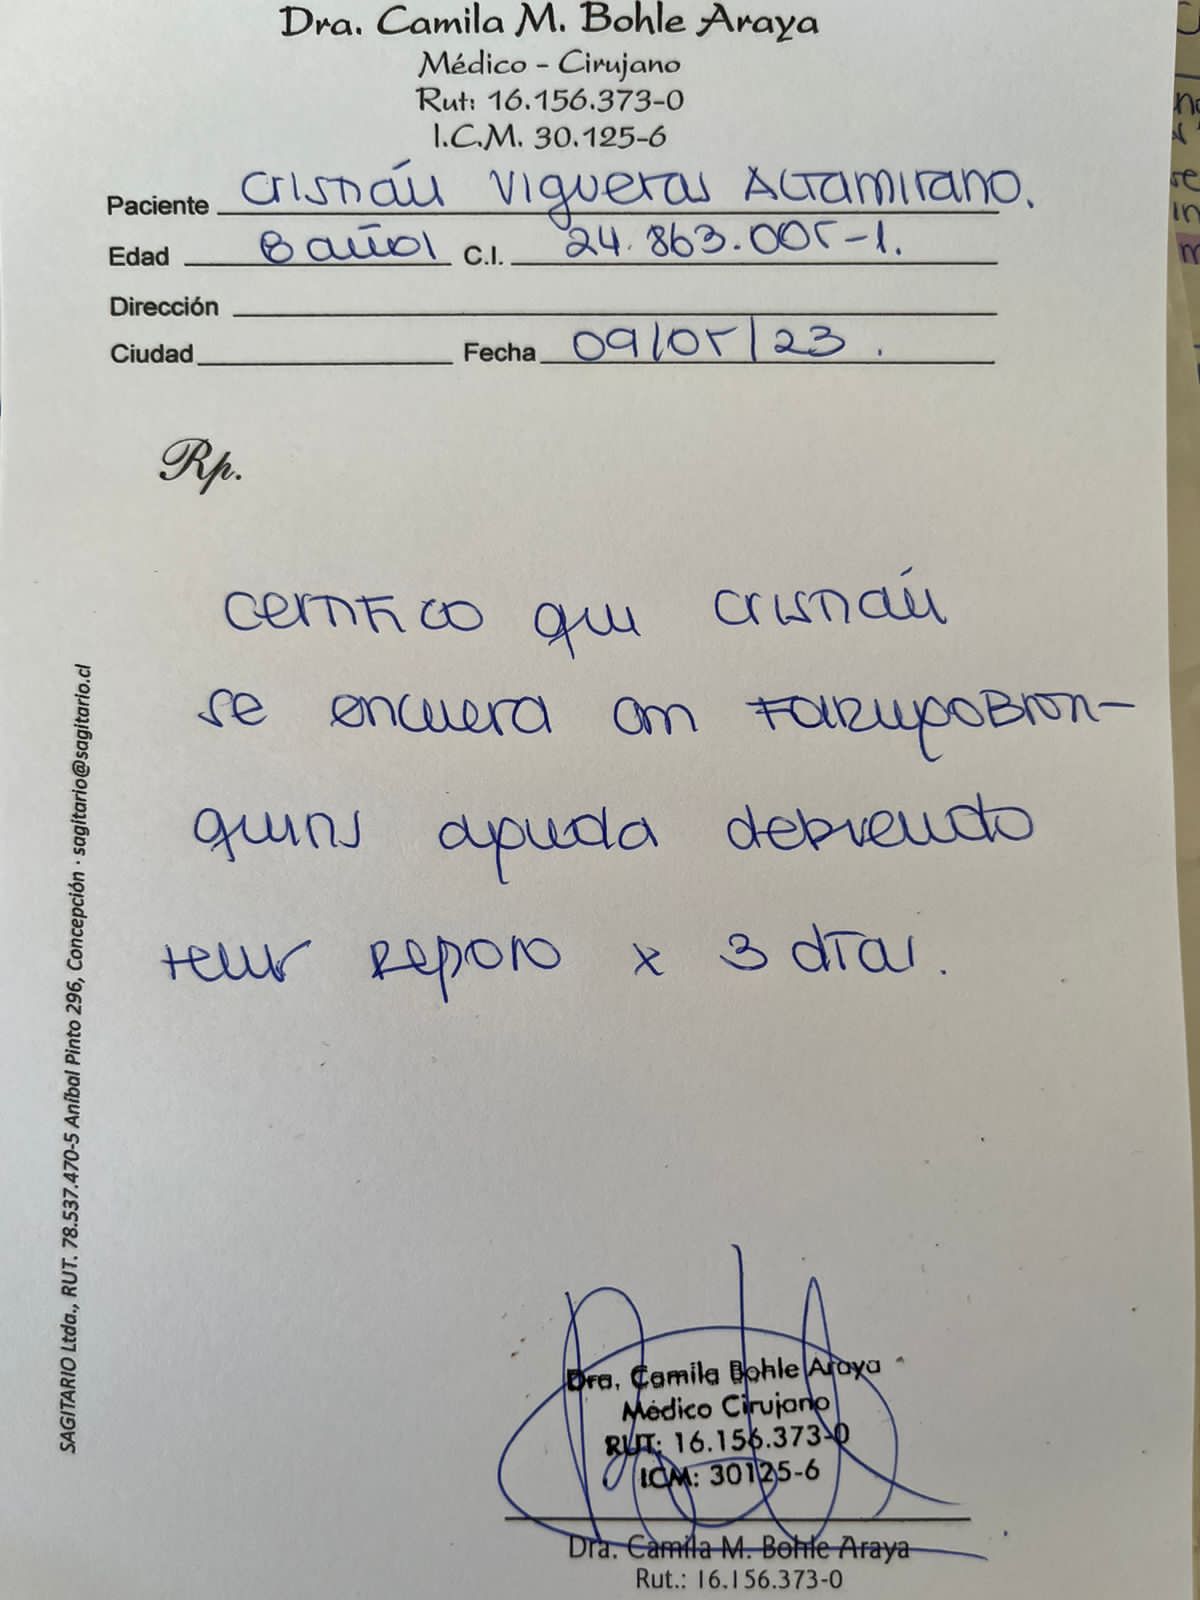 Dra. Camila M. Bohle Araya
Médico - Cirujano
Rut: 16.156.373-0
I.C.M. 30.125-6
Paciente Cristián Vigueras Altamirano.
Edad 8 años C.I. 24.863.005-1.
Dirección
Ciudad Fecha 09/05/23.
Rp.
Certifico que Cristián
se encuera con Faringobron-
quitis aguda debiendo
tener reposo x 3 días.
SAGITARIO Ltda., RUT. 78.537.470-5 Aníbal Pinto 296, Concepción · sagitario@sagitario.cl
Dra. Camila Bohle Araya
Médico Cirujano
RUT: 16.156.373-0
ICM: 30125-6
Dra. Camila M. Bohle Araya
Rut.: 16.156.373-0